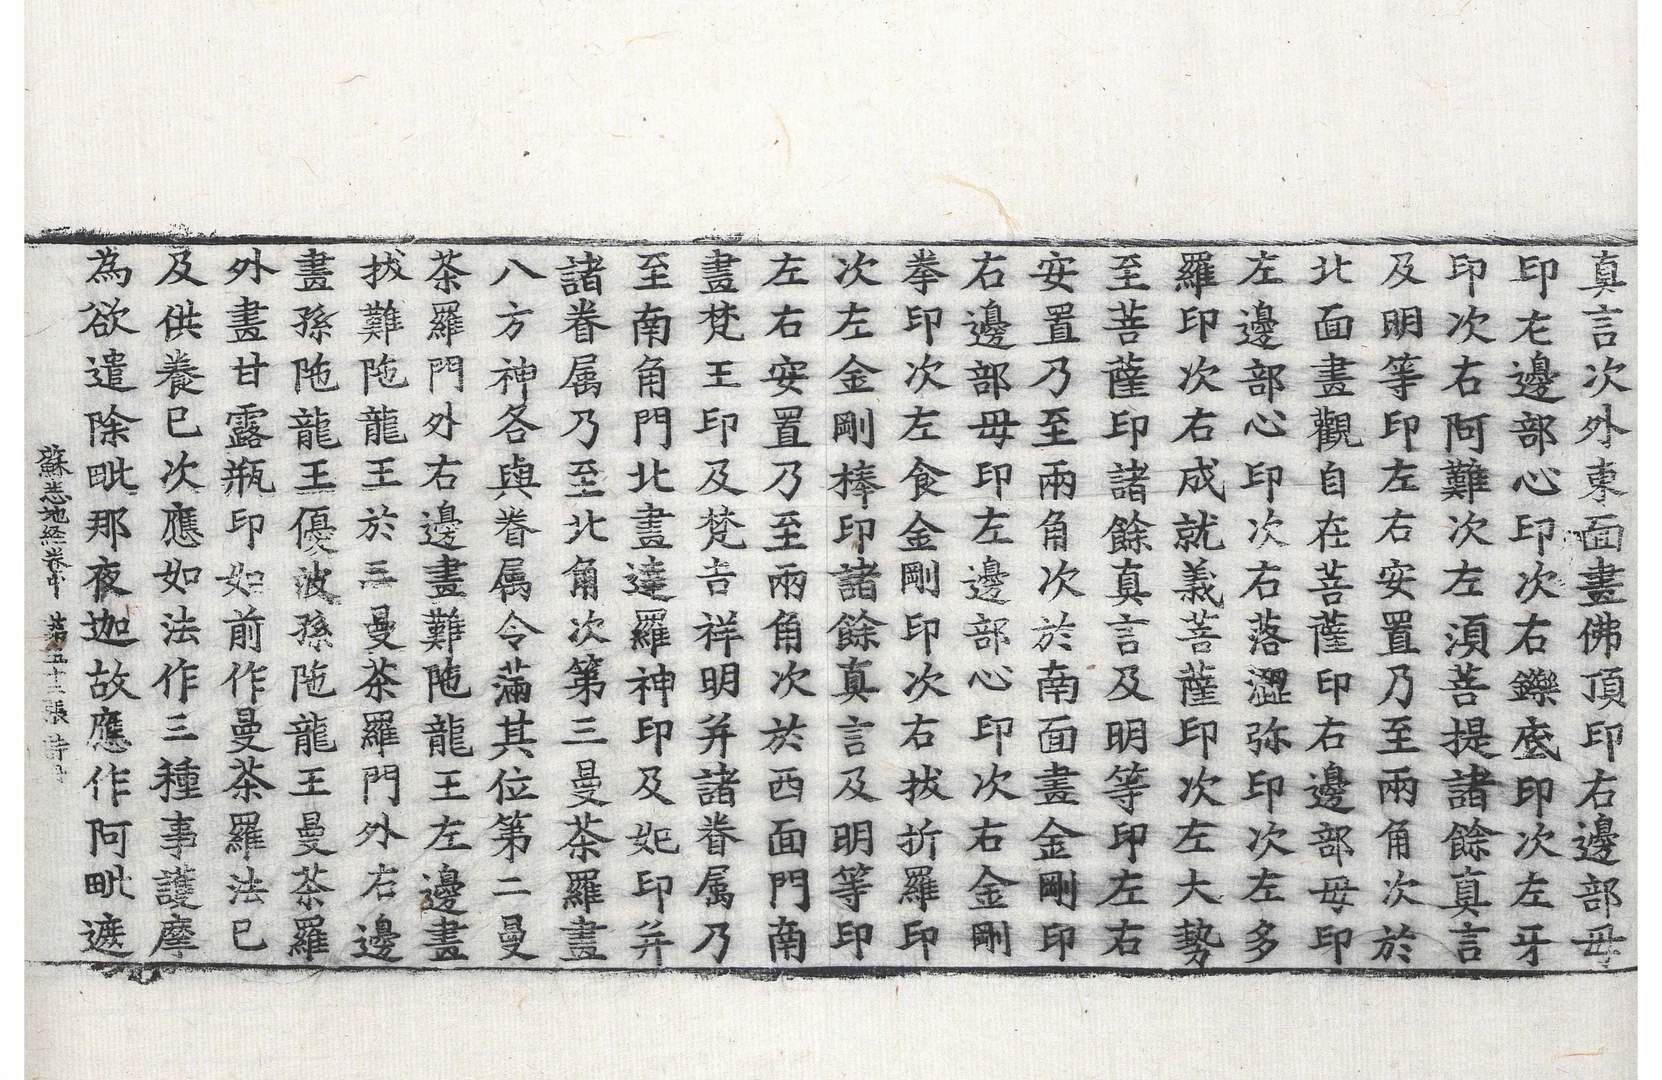 真言次外東面畫佛頂印右邊部母
印左邊部心印次右鑠底印次左牙
印次右阿難次左湏菩提諸餘真言
及明等印左右安置乃至兩角次於
北面畫觀自在菩薩印右邊部母印
左邊部心印次右落澀弥印次左多
羅印次右成就義菩薩印次左大勢
至菩薩印諸餘真言及明等印左右
安置乃至兩角次於南面畫金剛印
右邊部母印左邊部心印次右金剛
拳印次左食金剛印次右拔折羅印
次左金剛棒印諸餘真言及明等印
左右安置乃至兩角次於西面門南
畫梵王印及梵吉祥明并諸眷属乃
至南角門北畫達羅神印及妃印并
諸眷属乃至北角次第三曼荼羅畫
八方神各與眷属令滿其位第二曼
荼羅門外右邊畫難陁龍王左邊畫
拔難陁龍王於三曼荼羅門外右邊
畫孫陁龍王優波孫陁龍王曼荼羅
外畫甘露瓶印如前作曼荼羅法已
及供養已次應如法作三種事護摩
為欲遣除毗那夜迦故應作阿毗遮
蘇悉地経卷中 第五十三張 詩